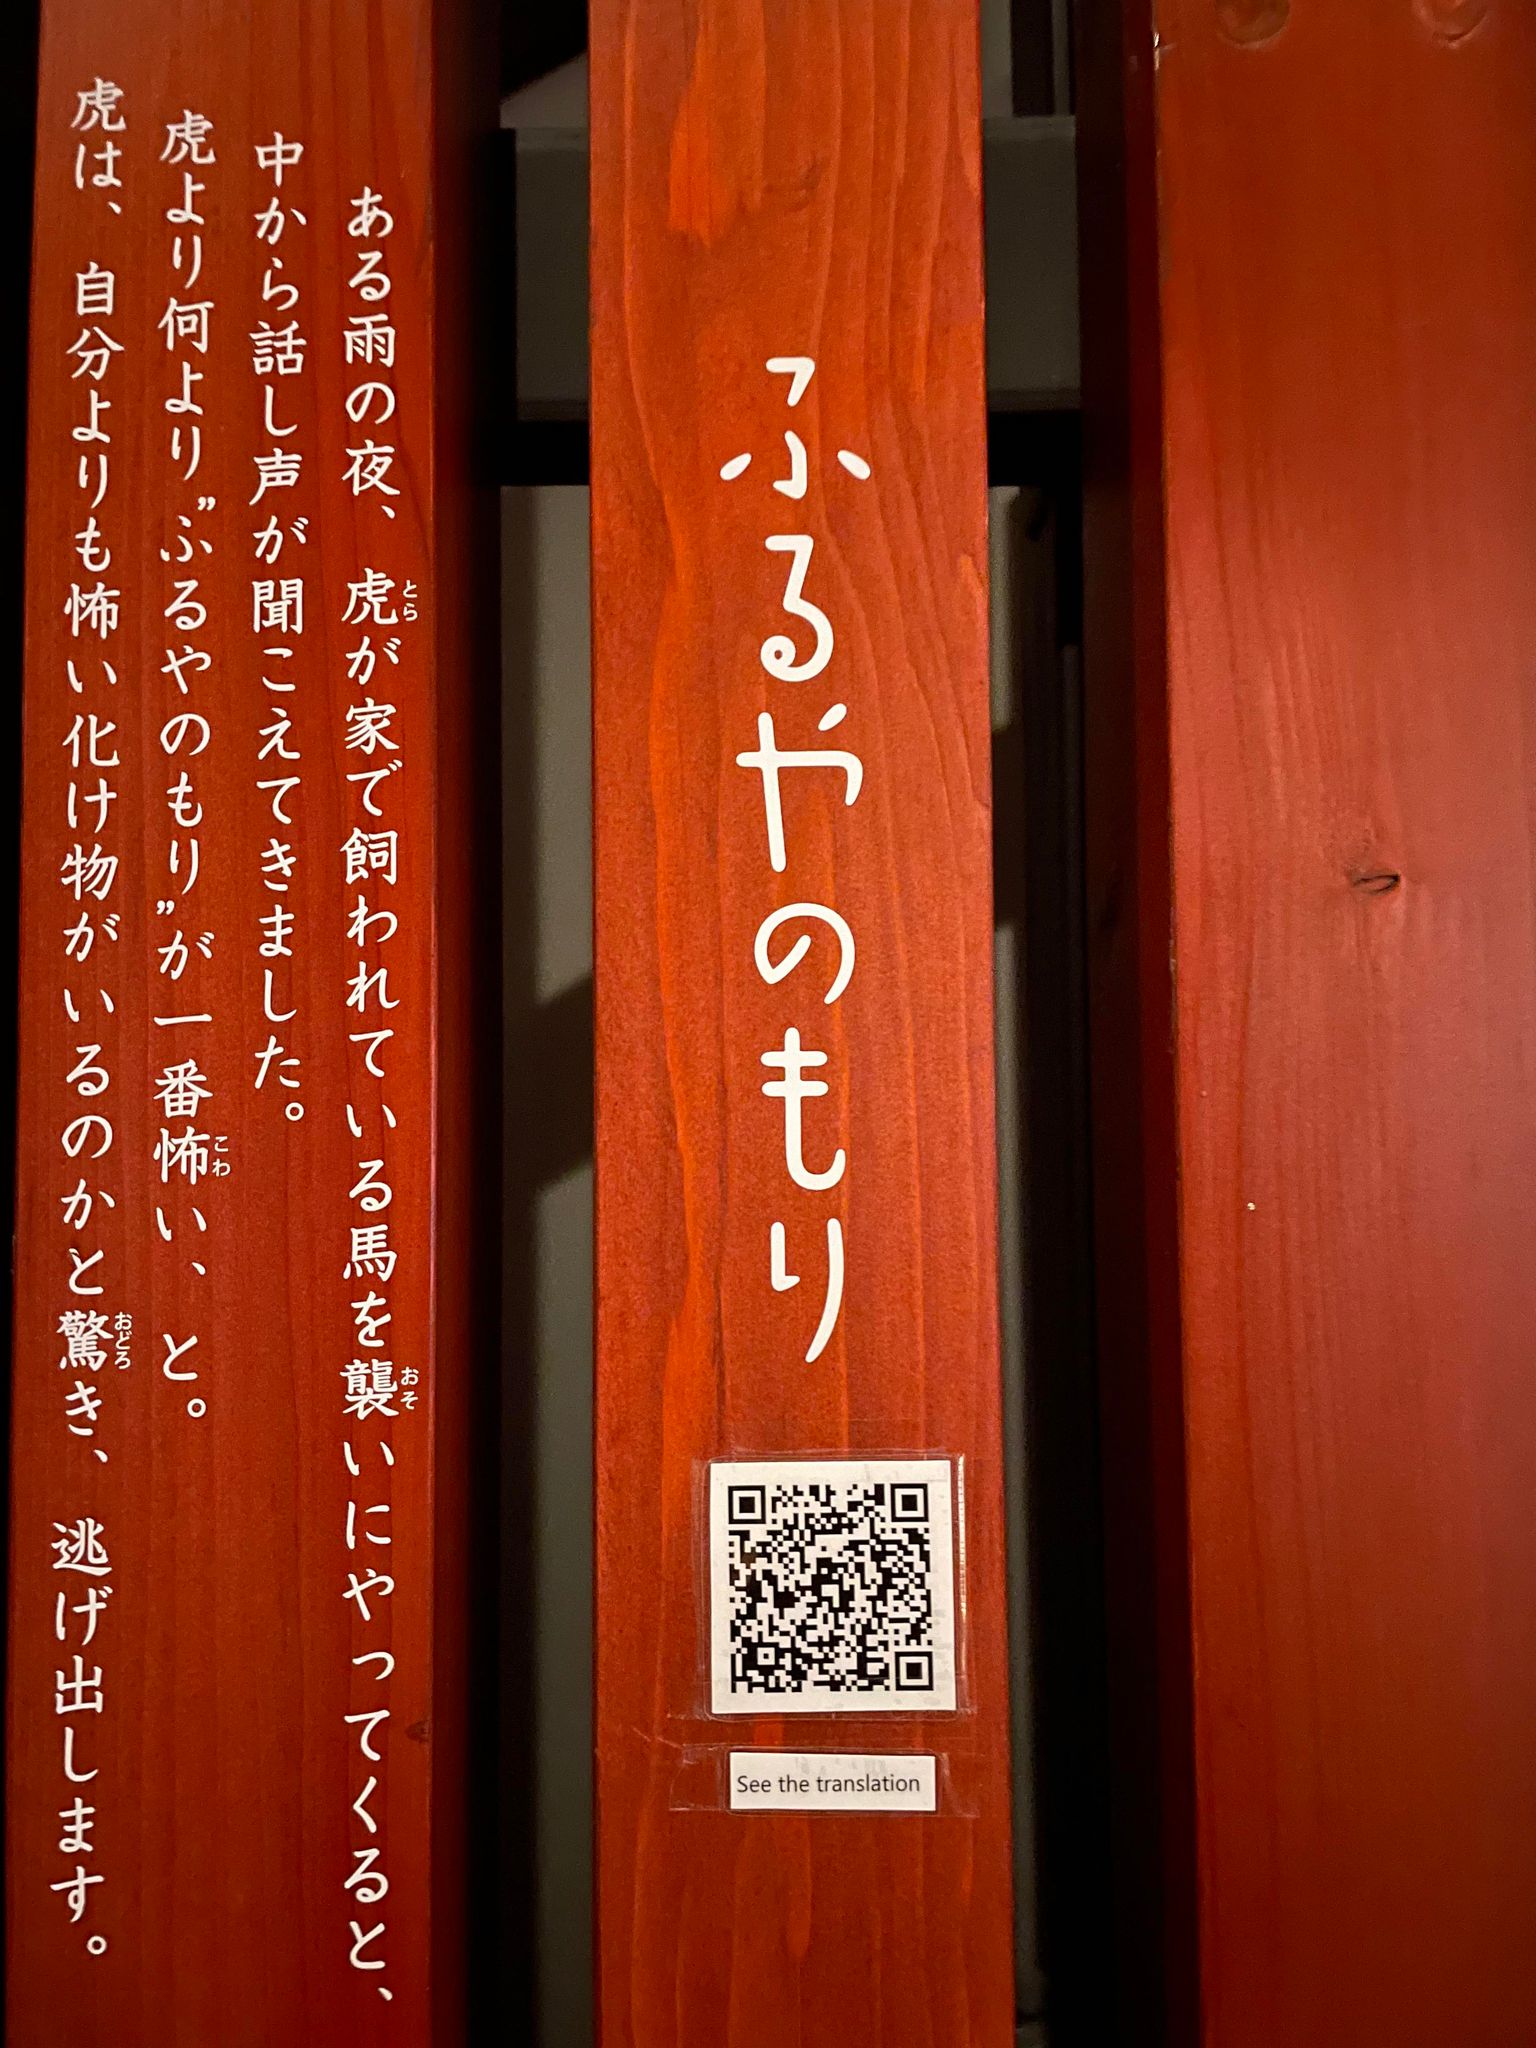 ふるやのもり
See the translation
ある雨の夜、虎が家で飼われている馬を襲いにやってくると、
とら
おそ
中から話し声が聞こえてきました。
虎より何より”ふるやのもり”が一番怖い、と。
こわ
虎は、自分よりも怖い化け物がいるのかと驚き、逃げ出します。
おどろ